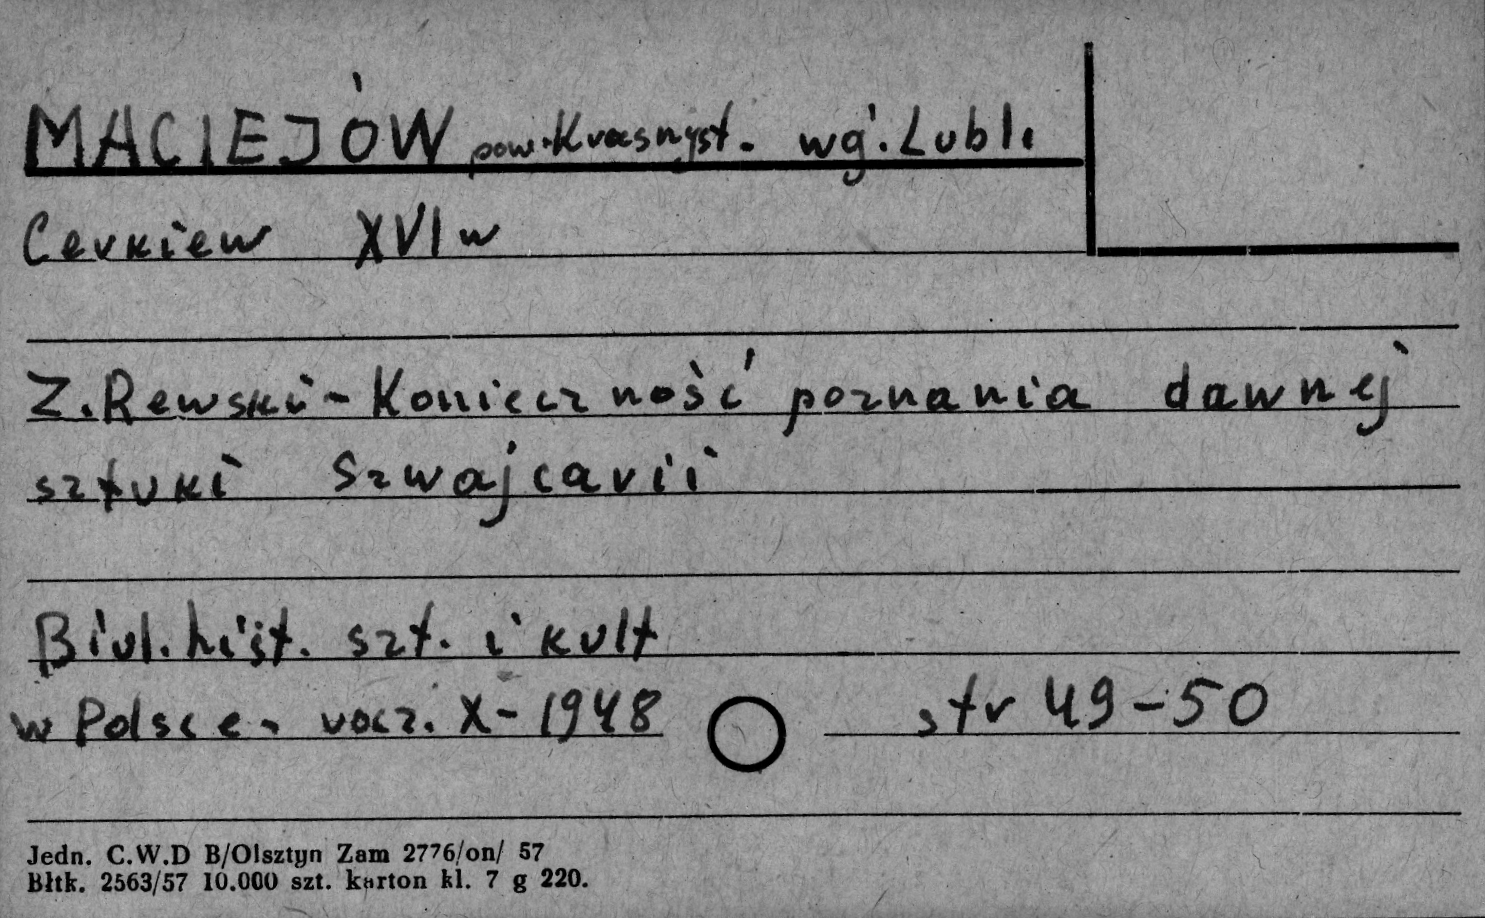 MACIEJÓW pow. Krasnyst. wg. Lubl.
Cerkiew XVI w
Z. Rewski - Konieczność poznania dawnej
sztuki Szwajcarii
Biul. hist. szt. i kult
w Polsce. rocz. X - 1948 str 49-50
Jedn. C.W.D B/Olsztyn Zam 2776/on/ 57
Błtk. 2563/57 10.000 szt. karton kl. 7 g 220.